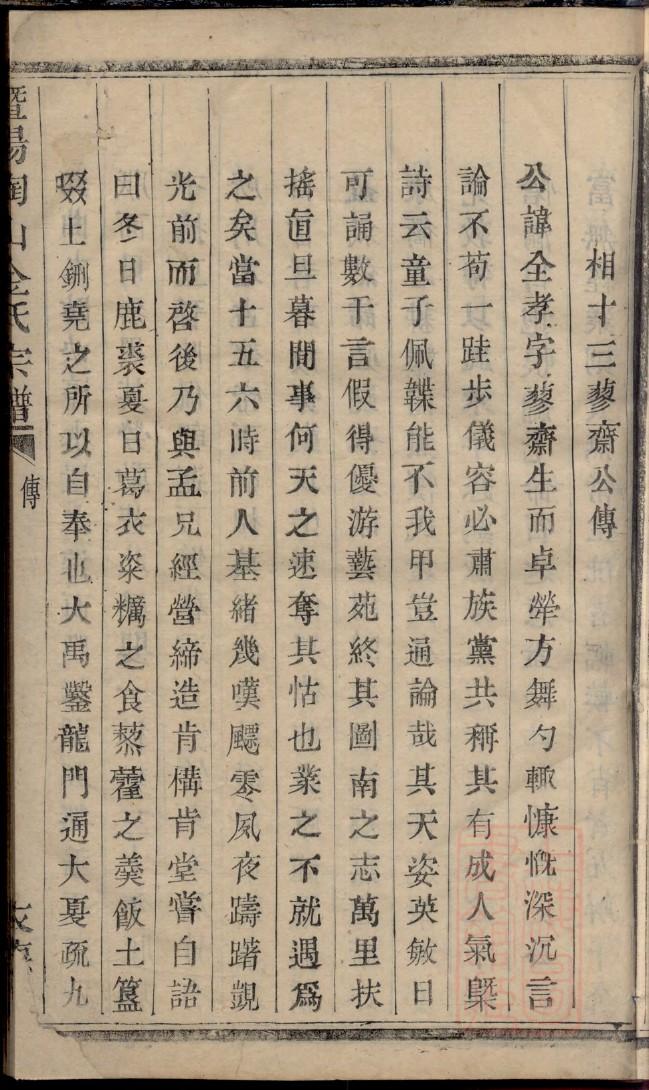 相十三蓼齋公傳
公諱全孝字蓼齋生而卓犖方舞勺輒慷慨深沉言
論不苟一跬步儀容必肅族黨共稱其有成人氣槩
詩云童子佩韘能不我甲豈通論哉其天姿英敏日
可誦數千言假得優游藝苑終其圖南之志萬里扶
搖直旦暮間事何天之速奪其怙也業之不就遇為
之矣當十五六時前人基緒幾嘆飃零夙夜躊躇覬
光前而啓後乃與孟兄經營締造肯構肯堂嘗自語
曰冬日鹿裘夏日葛衣粢糲之食藜藿之羹飯土簋
啜土鉶堯之所以自奉也大禹鑿龍門通大夏疏九
暨陽陶山金氏宗譜
傳